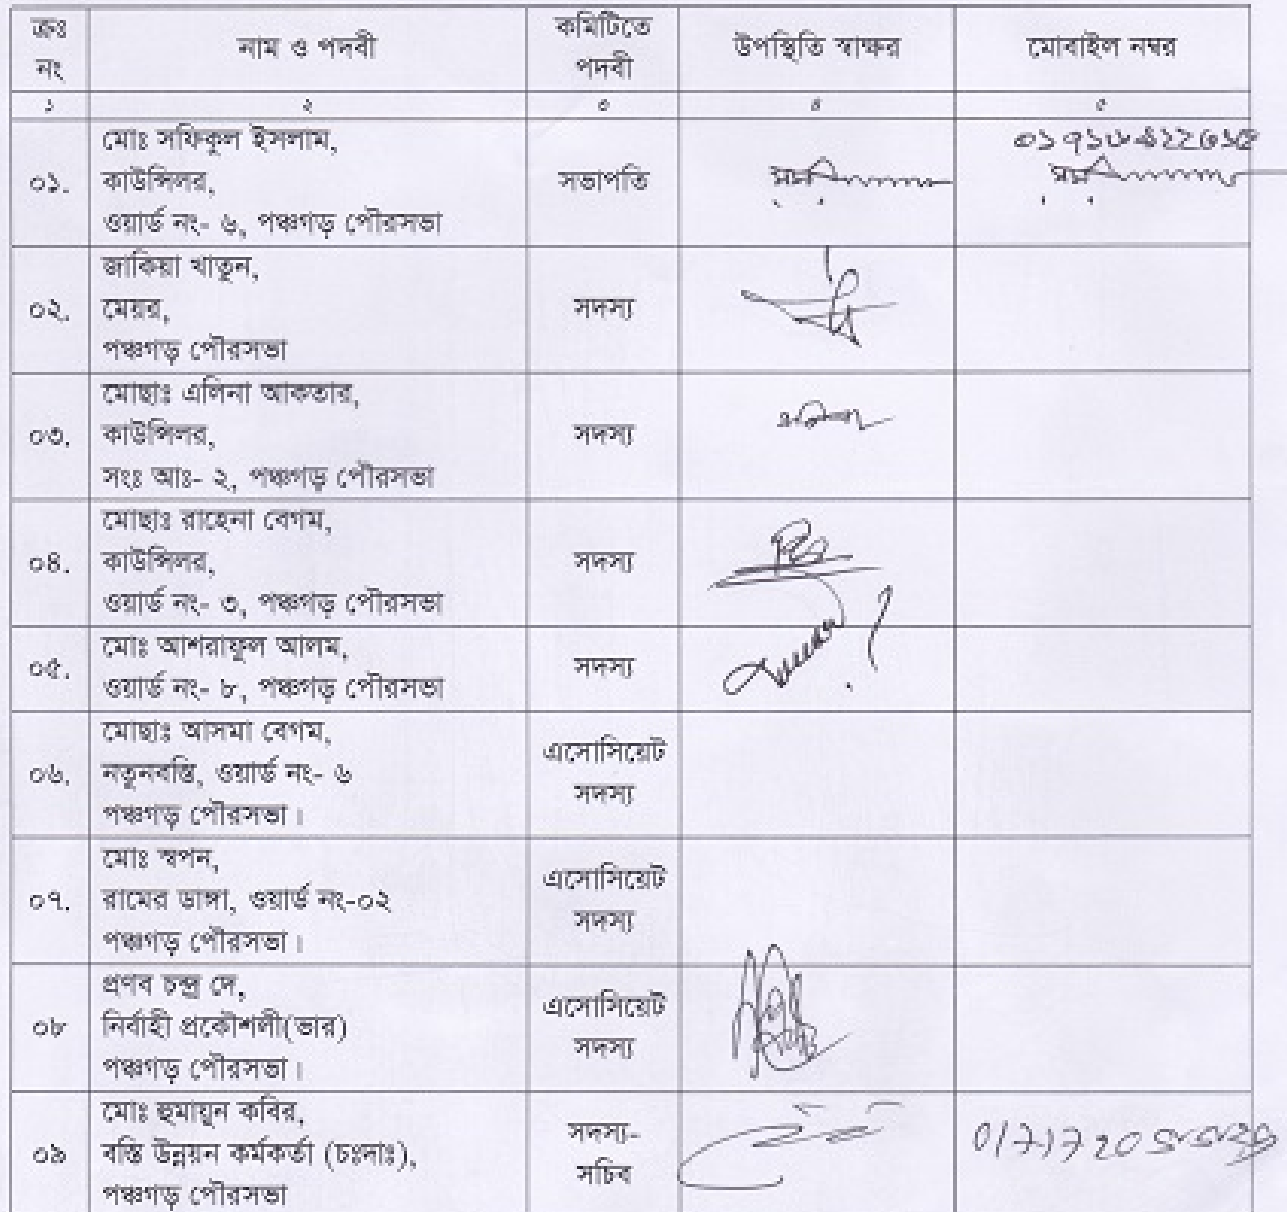 ক্রঃ নং
নাম ও পদবী
কমিটিতে পদবী
উপস্থিতি স্বাক্ষর
মোবাইল নম্বর
১ ২ ৩ ৪ ৫
০১.
মোঃ সফিকুল ইসলাম,
কাউন্সিলর,
ওয়ার্ড নং- ৬, পঞ্চগড় পৌরসভা
সভাপতি
০২.
জাকিয়া খাতুন,
মেয়র,
পঞ্চগড় পৌরসভা
সদস্য
০৩.
মোছাঃ এলিনা আকতার,
কাউন্সিলর,
সংঃ আঃ- ২, পঞ্চগড় পৌরসভা
সদস্য
০৪.
মোছাঃ রাহেনা বেগম,
কাউন্সিলর,
ওয়ার্ড নং- ৩, পঞ্চগড় পৌরসভা
সদস্য
০৫.
মোঃ আশরাফুল আলম,
ওয়ার্ড নং- ৮, পঞ্চগড় পৌরসভা
সদস্য
০৬.
মোছাঃ আসমা বেগম,
নতুনবস্তি, ওয়ার্ড নং- ৬
পঞ্চগড় পৌরসভা।
এসোসিয়েট
সদস্য
০৭.
মোঃ স্বপন,
রামের ডাঙ্গা, ওয়ার্ড নং-০২
পঞ্চগড় পৌরসভা।
এসোসিয়েট
সদস্য
০৮
প্রণব চন্দ্র দে,
নির্বাহী প্রকৌশলী(ভার)
পঞ্চগড় পৌরসভা।
এসোসিয়েট
সদস্য
০৯
মোঃ হুমায়ুন কবির,
বস্তি উন্নয়ন কর্মকর্তা (চঃদাঃ),
পঞ্চগড় পৌরসভা
সদস্য-
সচিব